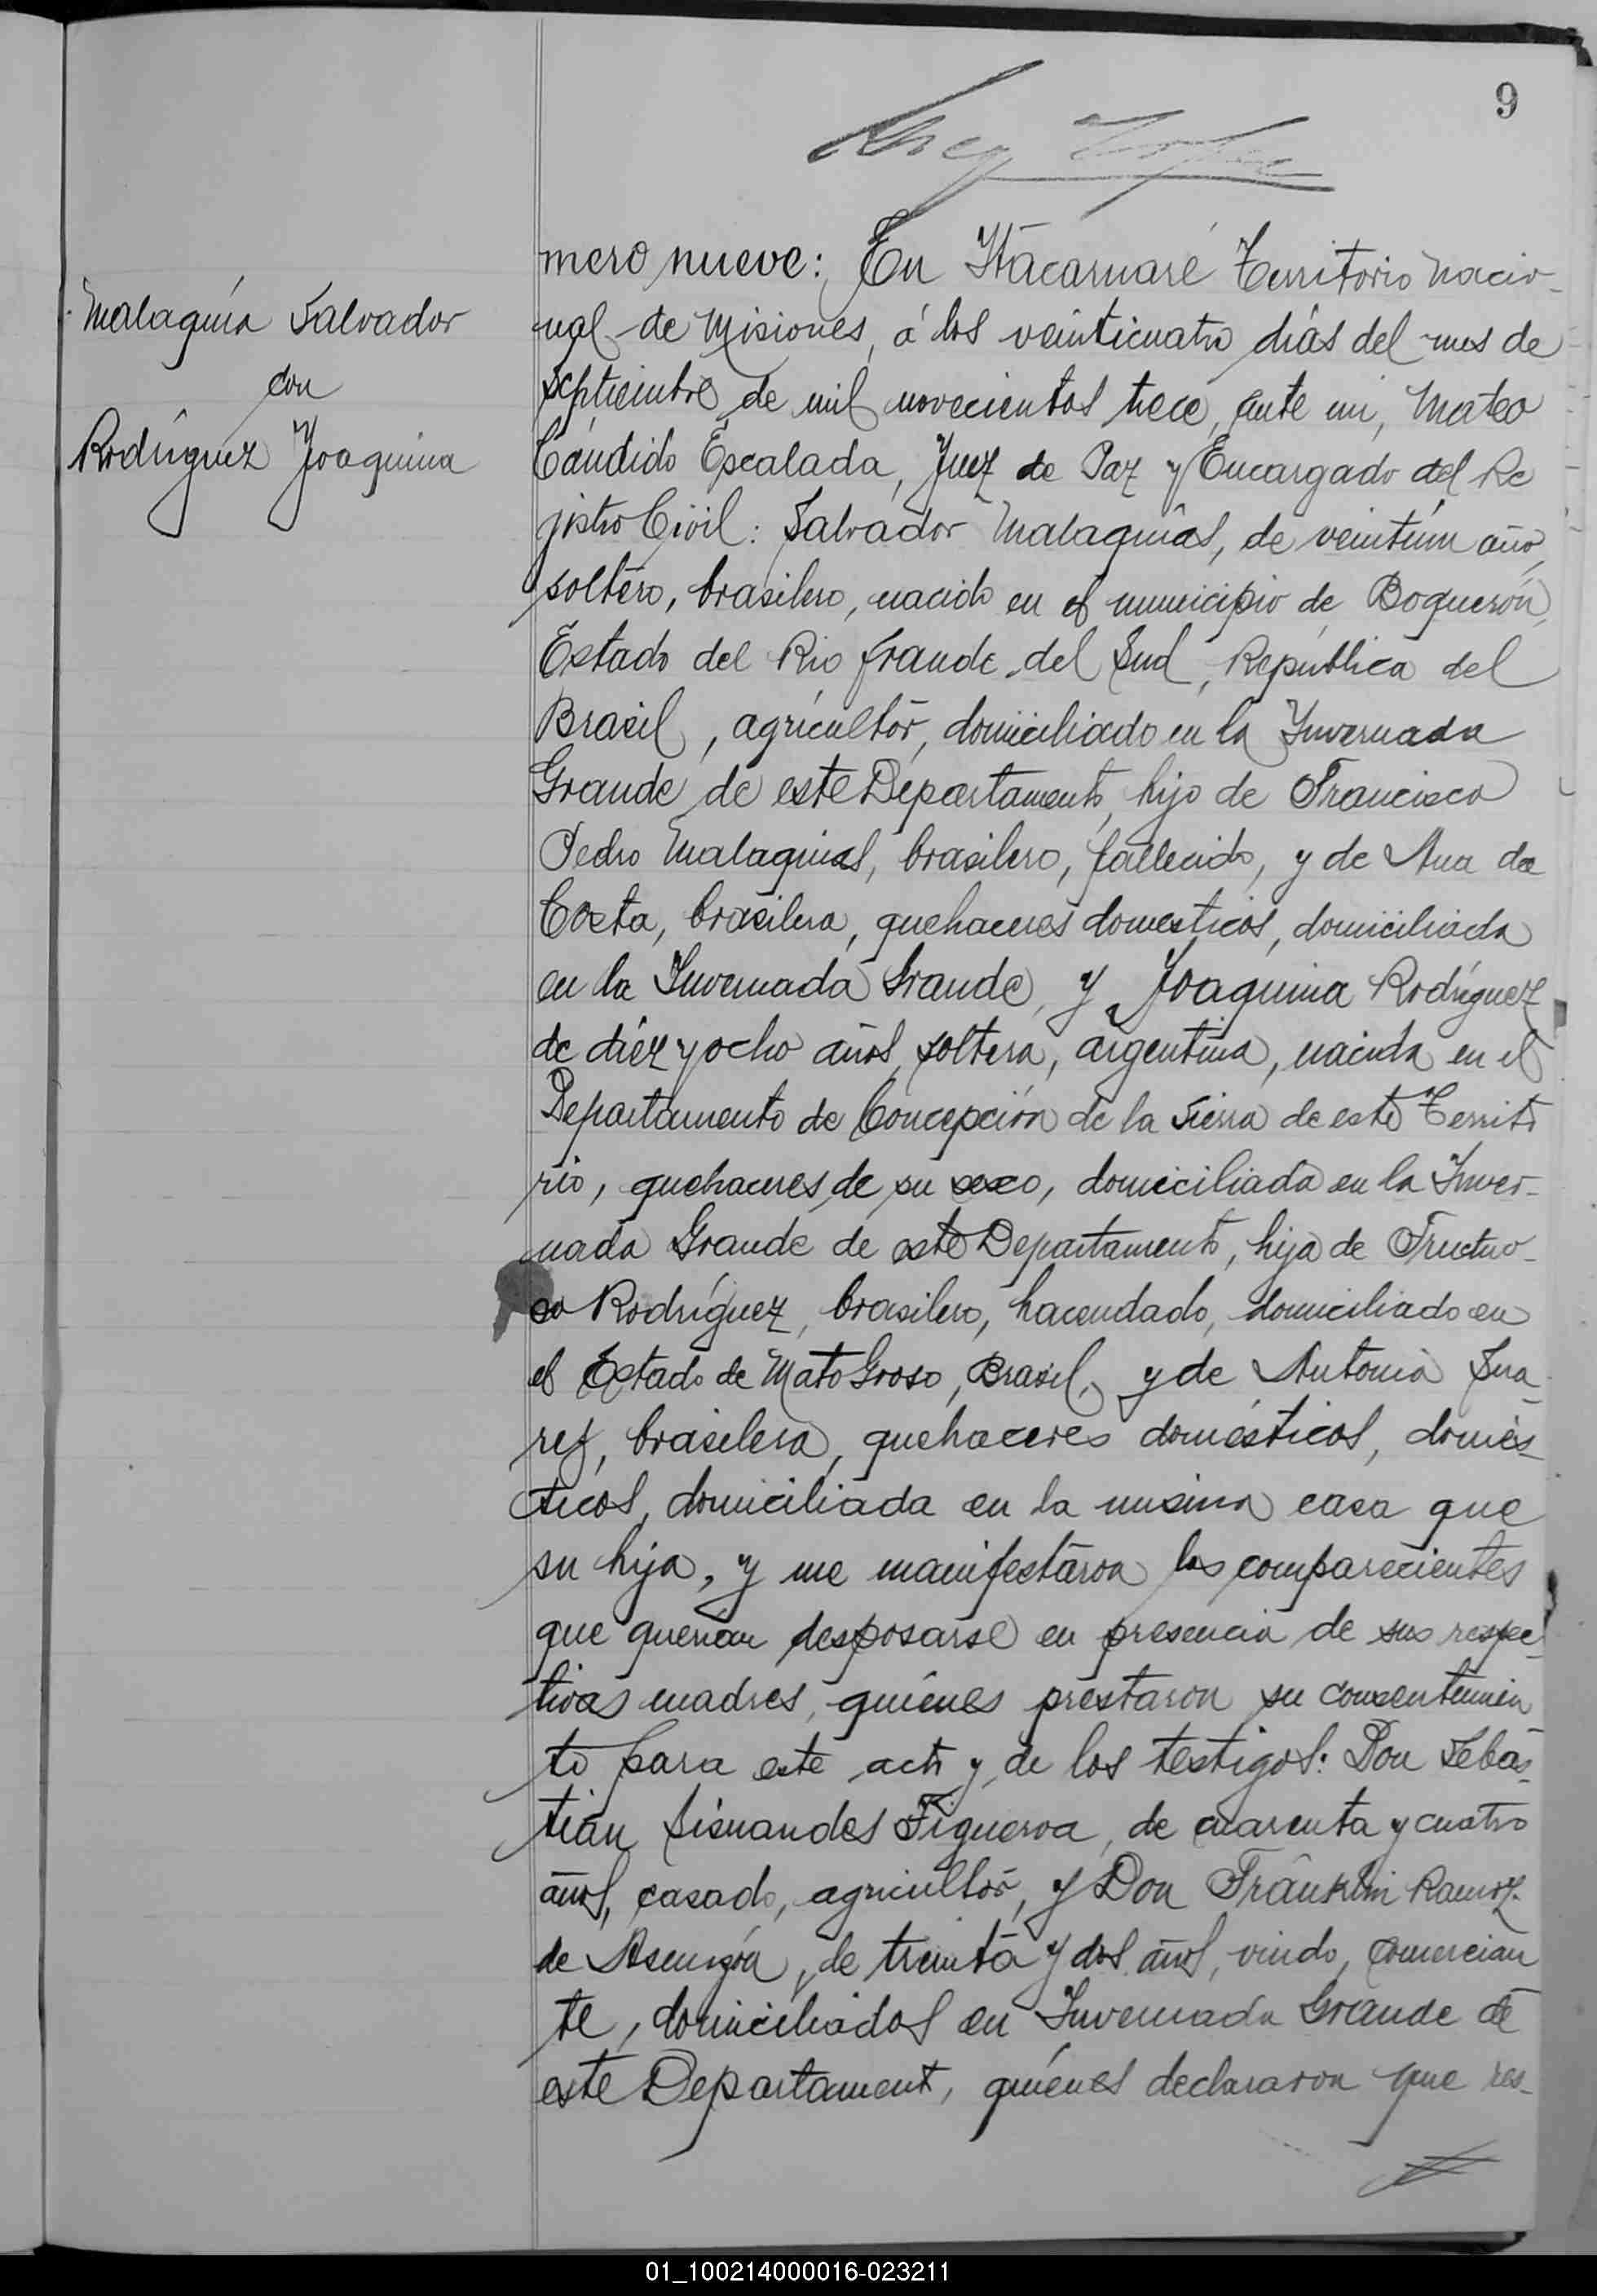 9
Malaguía Salvador
con
Rodríguez Joaquina
mero nueve: En Itacaruaré Territorio Nacio-
nal de Misiones, á los veinticuatro días del mes de
Septiembre de mil novecientos trece, ante mi, Mateo
Cándido Escalada, Juez de Paz y Encargado del Re
jistro Civil: Salvador Malaguías, de veintiun año,
soltero, brasilero, nacido en el municipio de Boquerón,
Estado del Rio Grande del Sud, República del
Brasil, agricultor, domiciliado en la Invernada
Grande de este Departamento, hijo de Francisco
Pedro Malaguias, brasilero, fallecido, y de Ana da
Costa, brasilera, quehaceres domesticos, domiciliada
en la Invernada Grande, y Joaquina Rodríguez
de diéz y ocho años, soltera, argentina, nacida en el
Departamento de Concepción de la Sierra de este Territo
rio, quehaceres de su sexo, domiciliada en la Inver-
nada Grande de este Departamento, hija de Fructuo-
so Rodríguez, brasilero, hacendado, domiciliado en
el Estado de Mato Groso, Brasil, y de Antonia Sua-
rez, brasilera, quehaceres domésticos, domés-
ticos, domiciliada en la misma casa que
su hija, y me manifestaron los comparecientes
que querían desposarse en presencia de sus respec-
tivas madres, quiénes prestaron su consentimien
to para este acto y de los testigos: Don Sebas-
tián Sisnandes Figueroa, de cuarenta y cuatro
años, casado, agricultor, y Don Franklin Ramoz
de Asensón, de treinta y dos años, viudo, comercian
te, domiciliados en Invernada Grande de
este Departament, quiénes declararon que res-
01_100214000016-023211